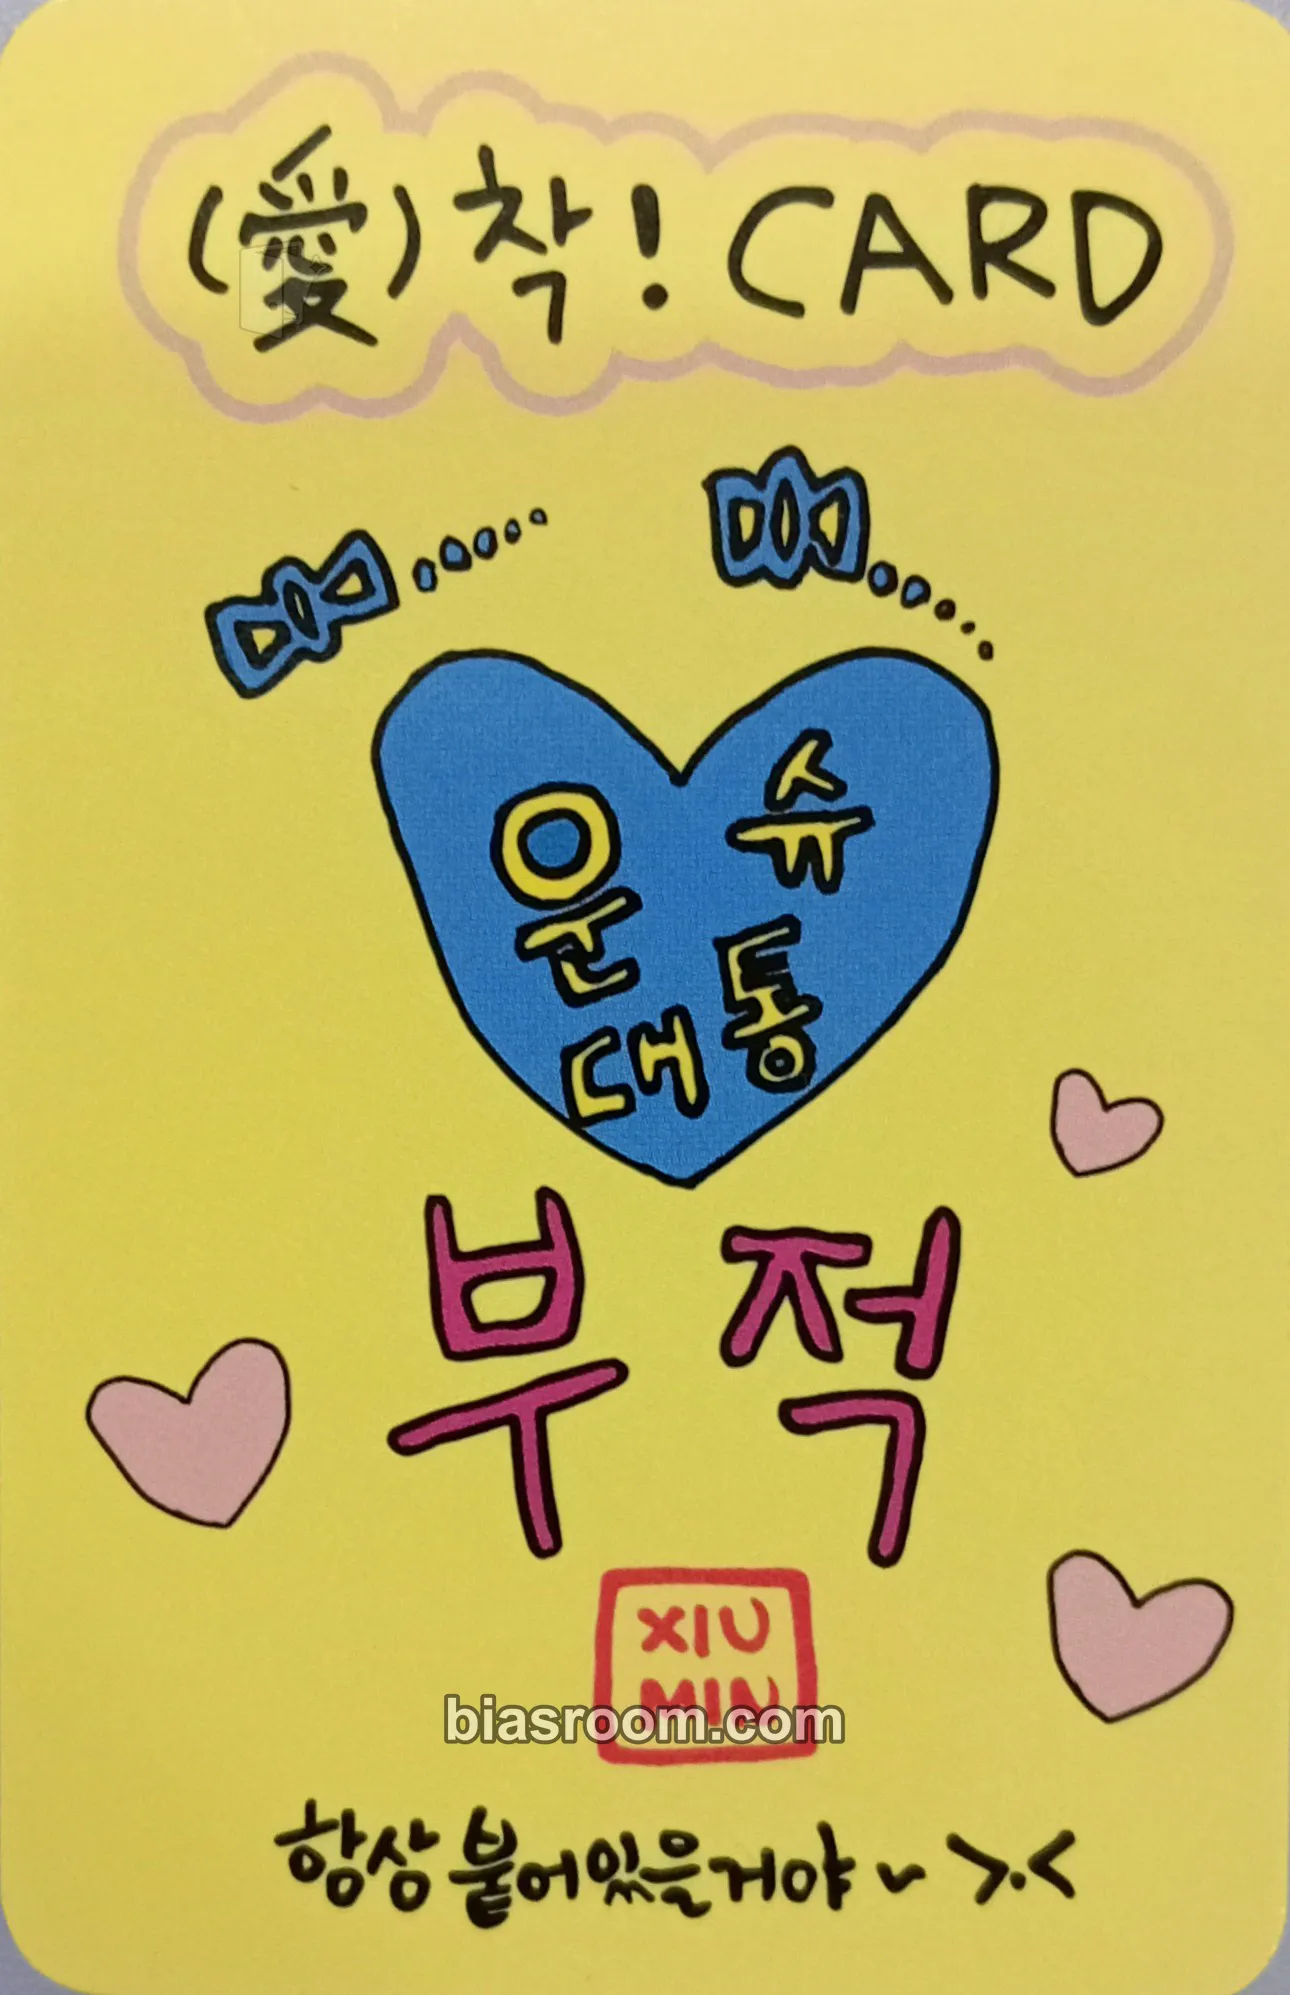 (愛)착! CARD
운슈
대통
부적
XIU
MIN
biasroom.com
항상 붙어있을거야~ >.<